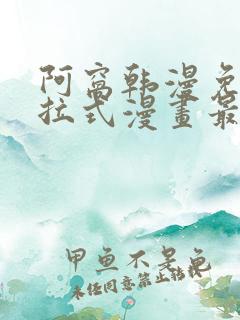 阿窝韩漫免
拉式漫畫最
甲鱼不是龟
未经同意禁止转载